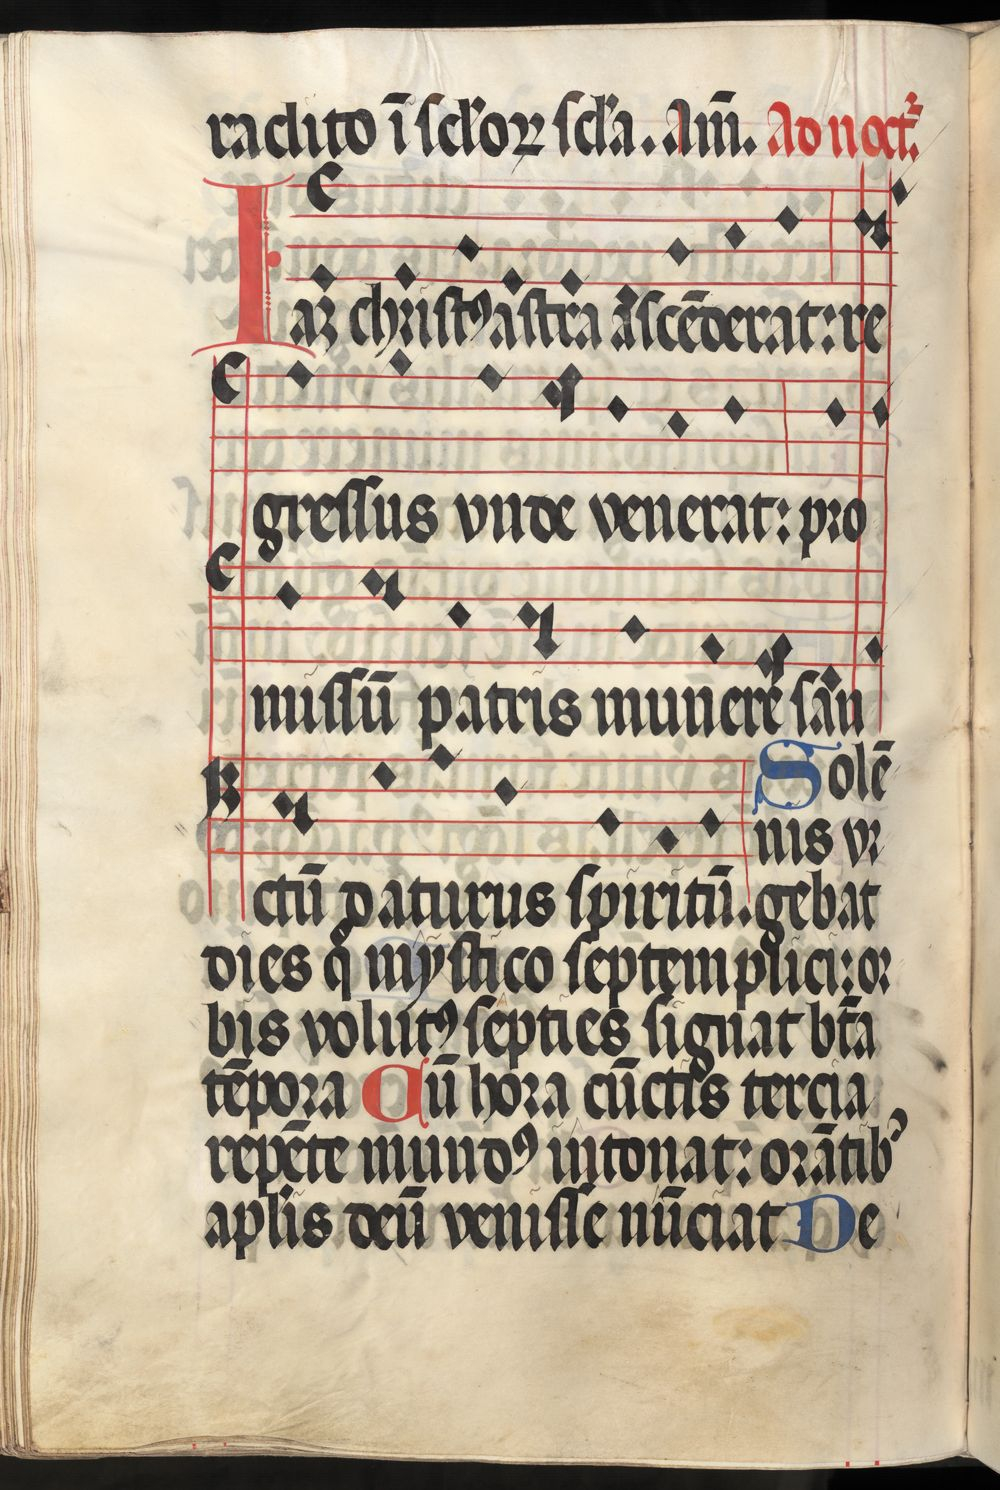 raclito ī sclorꝝ scła. Am̄. Ad noct᷑.
Iaꝫ christꝰ astra ascēderat: re
gressus vnde venerat: pro
missū patris munere san
Solē
nis vr
ctū daturus spiritū. gebat
dies q̊ mystico septemplici: or
bis volutꝰ septies signat bt̄a
tēpora Cū hora cūctis tercia
repēte mundꝰ intonat: orātibꝰ
aplis deū venisse nūciat De